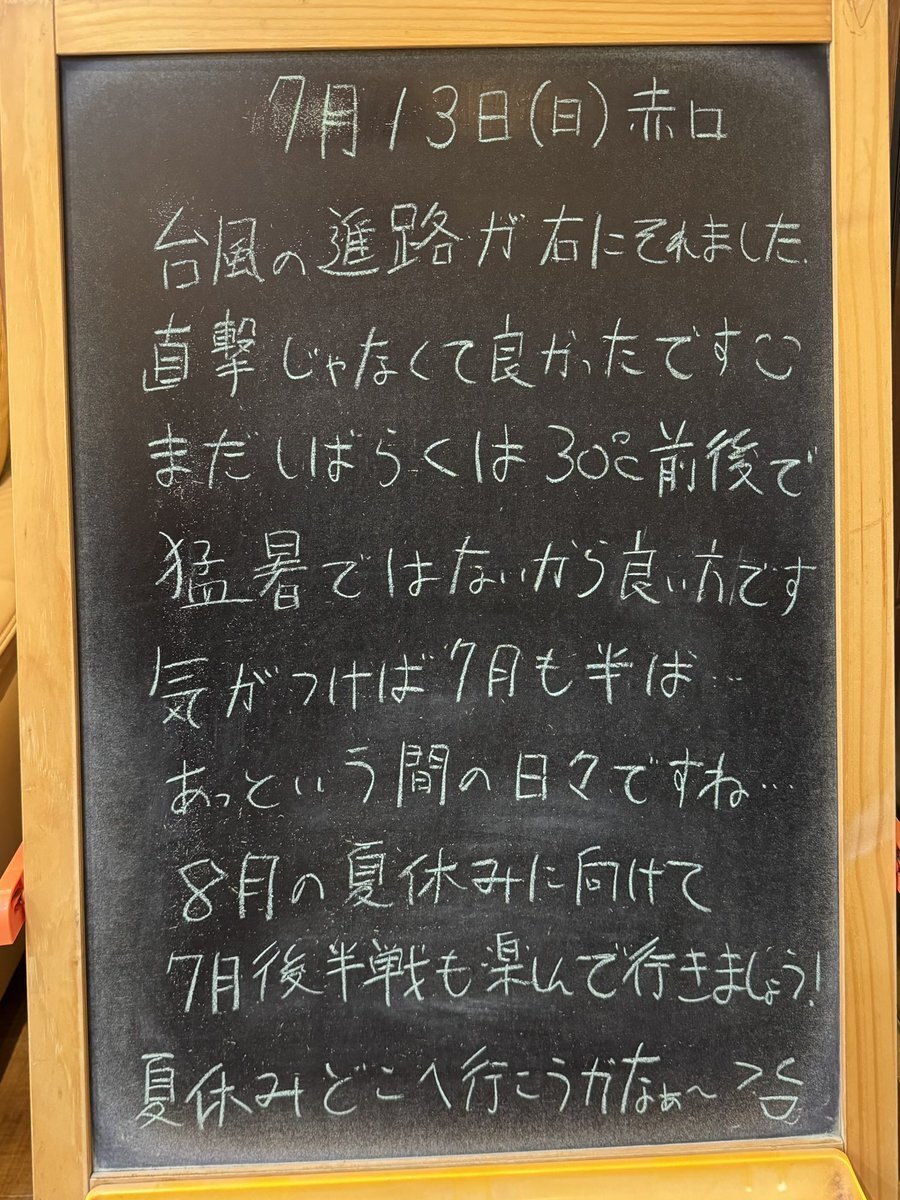 7月13日(日)赤口
台風の進路が右にそれました.
直撃じゃなくて良かったです
まだしばらくは30℃前後で
猛暑ではないから良い方です
気がつけば7月も半ば…
あっという間の日々ですね…
8月の夏休みに向けて
7月後半戦も楽しんで行きましょう!
夏休みどこへ行こうかなぁ〜